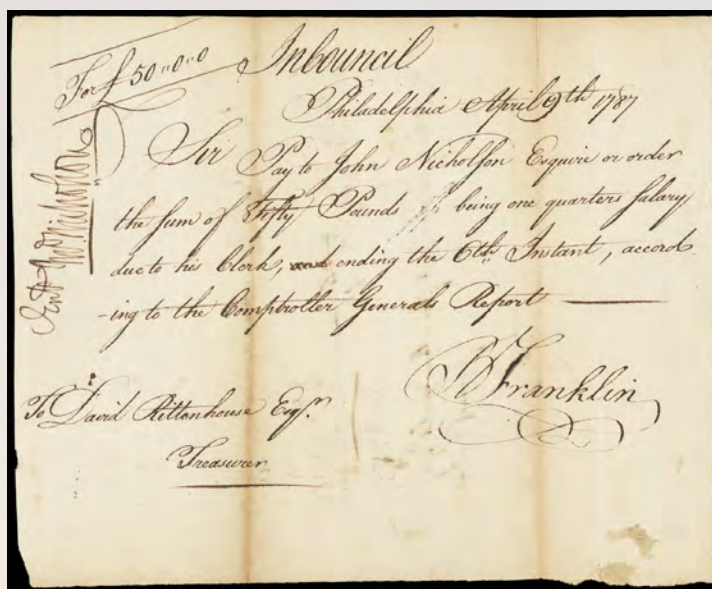 For £ 50"0"0
In Council
Philadelphia April 9th 1787
Sir Pay to John Nicholson Esquire or order
the sum of Fifty Pounds being one quarters salary
due to his Clerk, and ending the 6th Instant, accord
-ing to the Comptroller Generals Report
B Franklin
To David Rittenhouse Esqr.
Treasurer
Entd Jno. Nicholson